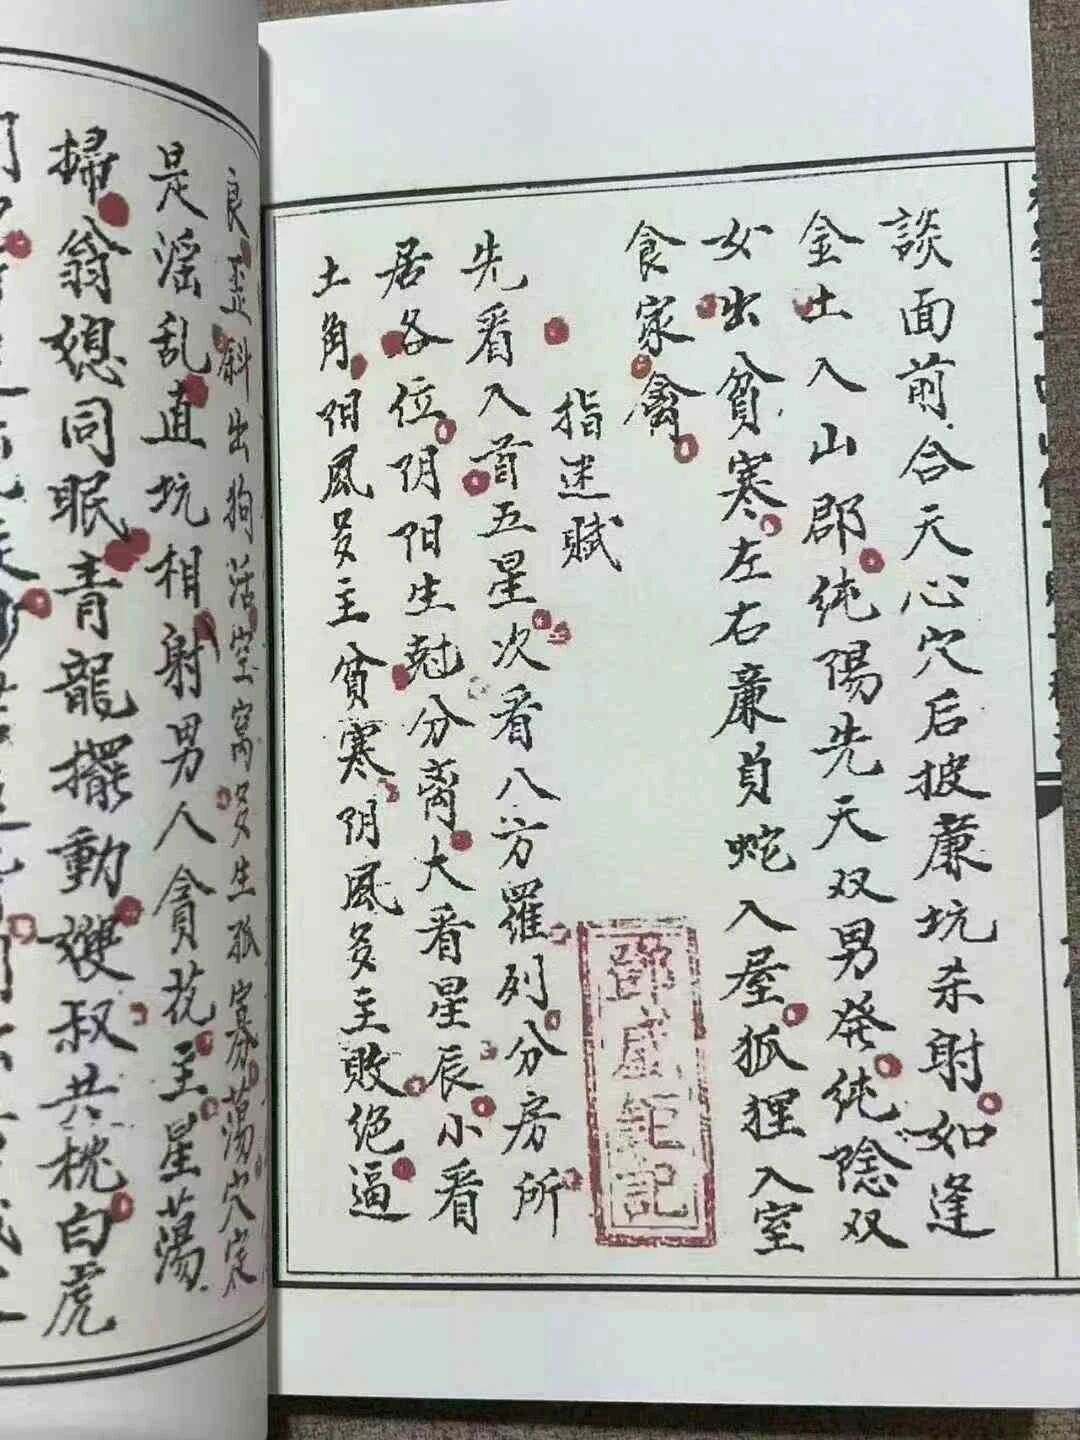 談面前合天心穴后披亷坑杀射如逢
金土入山郡纯陽先天双男発纯陰双
女出貧寒左右亷貞蛇入屋狐狸入室
食家禽
指迷賦
先看入首五星次看八方羅列分房所
居各位阴阳生尅分离大看星辰小看
土角阳風多主貧寒阴風多主敗绝逼
良歪斜出狗活室窝多生孤寡荡穴定
是淫乱直坑相射男人貪花主星荡
掃翁媳同眠青龍擺動嫂叔共枕白虎
邵盛鉅記